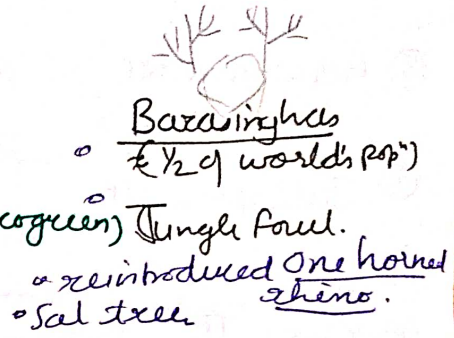 Barasinghas
(½ of world's popⁿ)
Jungle fowl.
reintroduced One horned
rhino.
Sal tree